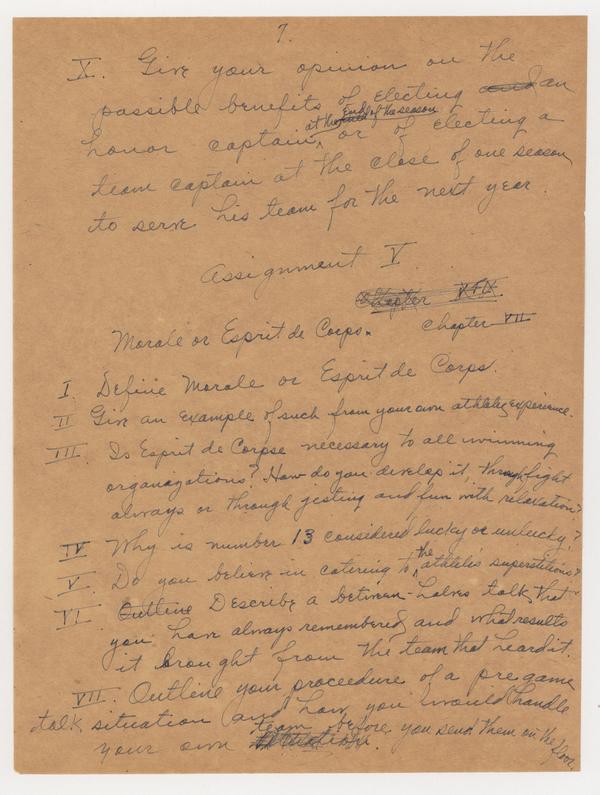 7.
X. Give your opinion on the
possible benefits of electing and an
honor captain, at the end of the season or of electing a
team captain at the close of one season
to serve his team for the next year.
Assignment V.
Chapter
Morale or Esprit de Corps. Chapter VII
I. Define Morale or Esprit de Corps.
II Give an example of such from your own athletic experience.
III. Is Esprit de Corpse necessary to all winning
organizations? How do you develop it, through fight
always or through jesting and fun with relaxation?
IV Why is number 13 considered lucky or unlucky?
V. Do you believe in catering to the athlete's superstitions?
VI. Outline Describe a between-halves talk, that
you have always remembered, and what results
it brought from the team that heard it.
VII. Outline your proceedure of a pregame
talk situation and how you would handle
your own team before you send them on the floor.